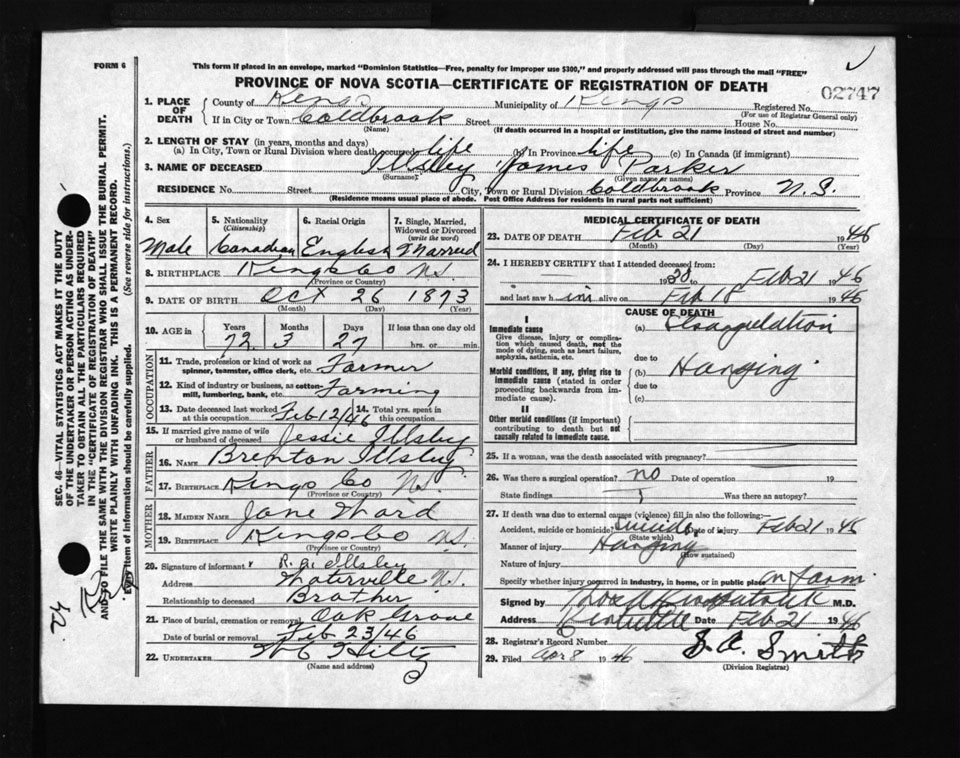 FORM 6
This form if placed in an envelope, marked "Dominion Statistics—Free, penalty for improper use $300," and properly addressed will pass through the mail "FREE"
PROVINCE OF NOVA SCOTIA—CERTIFICATE OF REGISTRATION OF DEATH
02747
1. PLACE OF DEATH
County of Kings Municipality of Kings Registered No.
(For use of Registrar General only)
If in City or Town Coldbrook Street House No.
(Name) (If death occurred in a hospital or institution, give the name instead of street and number)
2. LENGTH OF STAY (in years, months and days)
(a) In City, Town or Rural Division where death occurred life (b) In Province life (c) In Canada (if immigrant)
3. NAME OF DECEASED Illsley James Parker
(Surname) (Given name or names)
RESIDENCE No. Street City, Town or Rural Division Coldbrook Province N.S.
(Residence means usual place of abode. Post Office Address for residents in rural parts not sufficient)
4. Sex Male
5. Nationality (Citizenship) Canadian
6. Racial Origin English
7. Single, Married, Widowed or Divorced (write the word) Married
8. BIRTHPLACE Kings Co N.S.
(Province or Country)
9. DATE OF BIRTH Oct 26 1873
(Month) (Day) (Year)
10. AGE in Years Months Days If less than one day old
72 3 27 hrs. or min.
OCCUPATION
11. Trade, profession or kind of work as spinner, teamster, office clerk, etc. Farmer
12. Kind of industry or business, as cotton-mill, lumbering, bank, etc. Farming
13. Date deceased last worked at this occupation Feb 12/46
14. Total yrs. spent in this occupation
15. If married give name of wife or husband of deceased Jessie Illsley
FATHER
16. NAME Brenton Illsley
17. BIRTHPLACE Kings Co N.S.
(Province or Country)
MOTHER
18. MAIDEN NAME Jane Ward
19. BIRTHPLACE Kings Co N.S.
(Province or Country)
20. Signature of informant R. A. Illsley
Address Waterville N.S.
Relationship to deceased Brother
21. Place of burial, cremation or removal Oak Grove
Date of burial or removal Feb 23/46
22. UNDERTAKER W C Hiltz
(Name and address)
MEDICAL CERTIFICATE OF DEATH
23. DATE OF DEATH Feb 21 1946
(Month) (Day) (Year)
24. I HEREBY CERTIFY that I attended deceased from:
1938 to Feb 21 1946
and last saw him alive on Feb 18 1946
CAUSE OF DEATH
I
Immediate cause
Give disease, injury or complication which caused death, not the mode of dying, such as heart failure, asphyxia, asthenia, etc.
(a)
due to
Morbid conditions, if any, giving rise to immediate cause (stated in order proceeding backwards from immediate cause).
(b) Hanging
due to
(c)
II
Other morbid conditions (if important) contributing to death but not causally related to immediate cause.
25. If a woman, was the death associated with pregnancy?
26. Was there a surgical operation? no Date of operation 19
State findings Was there an autopsy?
27. If death was due to external causes (violence) fill in also the following:
Accident, suicide or homicide? Suicide Date of injury Feb 21 1946
(State which)
Manner of injury Hanging
(How sustained)
Nature of injury
Specify whether injury occurred in industry, in home, or in public place on farm
Signed by M.D.
Address Date Feb 21 1946
28. Registrar's Record Number
29. Filed Apr 8 1946 S. A. Smith
(Division Registrar)
SEC. 46—VITAL STATISTICS ACT MAKES IT THE DUTY
OF THE UNDERTAKER OR PERSON ACTING AS UNDER-
TAKER TO OBTAIN ALL THE PARTICULARS REQUIRED
IN THE "CERTIFICATE OF REGISTRATION OF DEATH"
AND TO FILE THE SAME WITH THE DIVISION REGISTRAR WHO SHALL ISSUE THE BURIAL PERMIT.
WRITE PLAINLY WITH UNFADING INK. THIS IS A PERMANENT RECORD.
Every item of information should be carefully supplied. (See reverse side for instructions.)